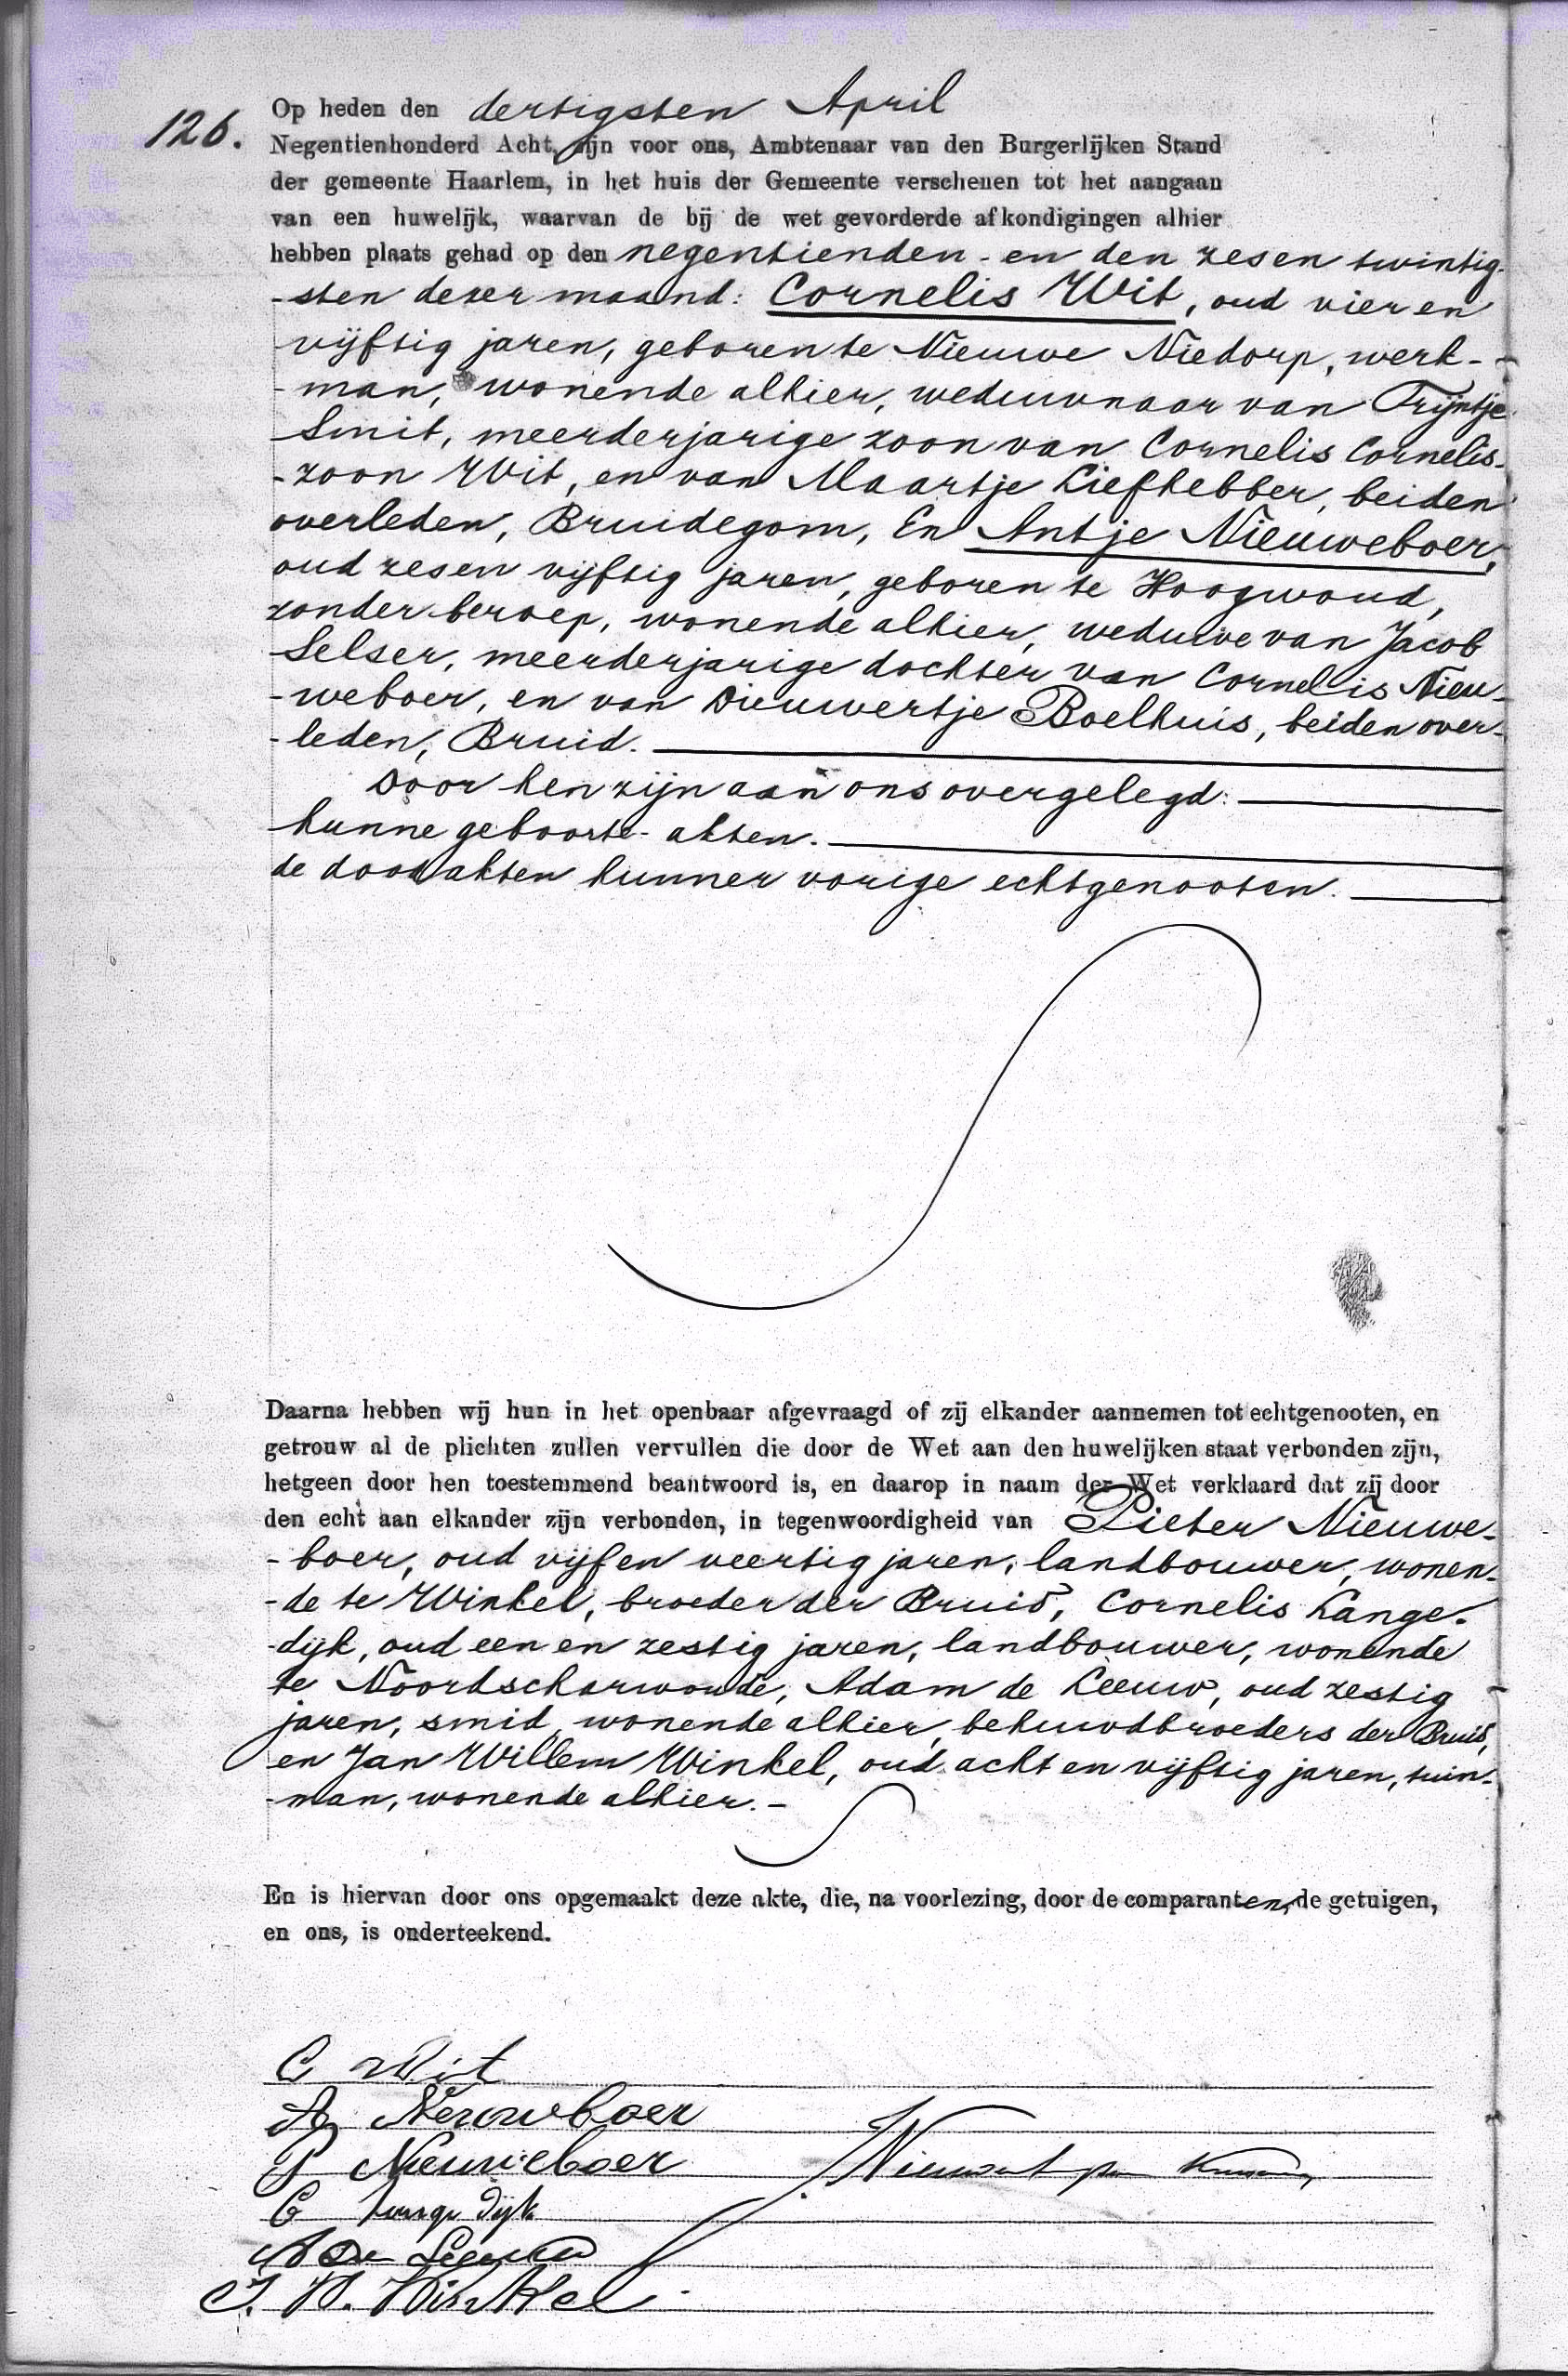 126.
Op heden den dertigsten April
Negentienhonderd Acht, zijn voor ons, Ambtenaar van den Burgerlijken Stand
der gemeente Haarlem, in het huis der Gemeente verschenen tot het aangaan
van een huwelijk, waarvan de bij de wet gevorderde afkondigingen alhier
hebben plaats gehad op den negentienden - en den zesen twintig-
-sten dezer maand: Cornelis Wit, oud vier en
vijftig jaren, geboren te Nieuwe Niedorp, werk-
-man, wonende alhier, weduwnaar van Trijntje
Smit, meerderjarige zoon van Cornelis Cornelis-
-zoon Wit, en van Maartje Liefhebber, beiden
overleden, Bruidegom, En Antje Nieuweboer,
oud zesen vijftig jaren, geboren te Hoogwoud,
zonder beroep, wonende alhier, weduwe van Jacob
Selser, meerderjarige dochter van Cornelis Nieu-
-weboer, en van Dieuwertje Boelhuis, beiden over-
-leden, Bruid.
Door hen zijn aan ons overgelegd:
hunne geboorte-akten.
de doodakten hunner vorige echtgenooten.
Daarna hebben wij hun in het openbaar afgevraagd of zij elkander aannemen tot echtgenooten, en
getrouw al de plichten zullen vervullen die door de Wet aan den huwelijken staat verbonden zijn,
hetgeen door hen toestemmend beantwoord is, en daarop in naam der Wet verklaard dat zij door
den echt aan elkander zijn verbonden, in tegenwoordigheid van Pieter Nieuwe-
-boer, oud vijf en veertig jaren, landbouwer, wonen-
-de te Winkel, broeder der Bruid, Cornelis Lange-
-dijk, oud een en zestig jaren, landbouwer, wonende
te Noordscharwoude, Adam de Leeuw, oud zestig
jaren, smid, wonende alhier, behuwdbroeders der Bruid,
en Jan Willem Winkel, oud acht en vijftig jaren, tuin-
-man, wonende alhier.-
En is hiervan door ons opgemaakt deze akte, die, na voorlezing, door de comparanten, de getuigen,
en ons, is onderteekend.
C Wit
A Nieuwboer
P Nieuweboer
C Lange Dijk
A De Leeuw
J. W. Winkel